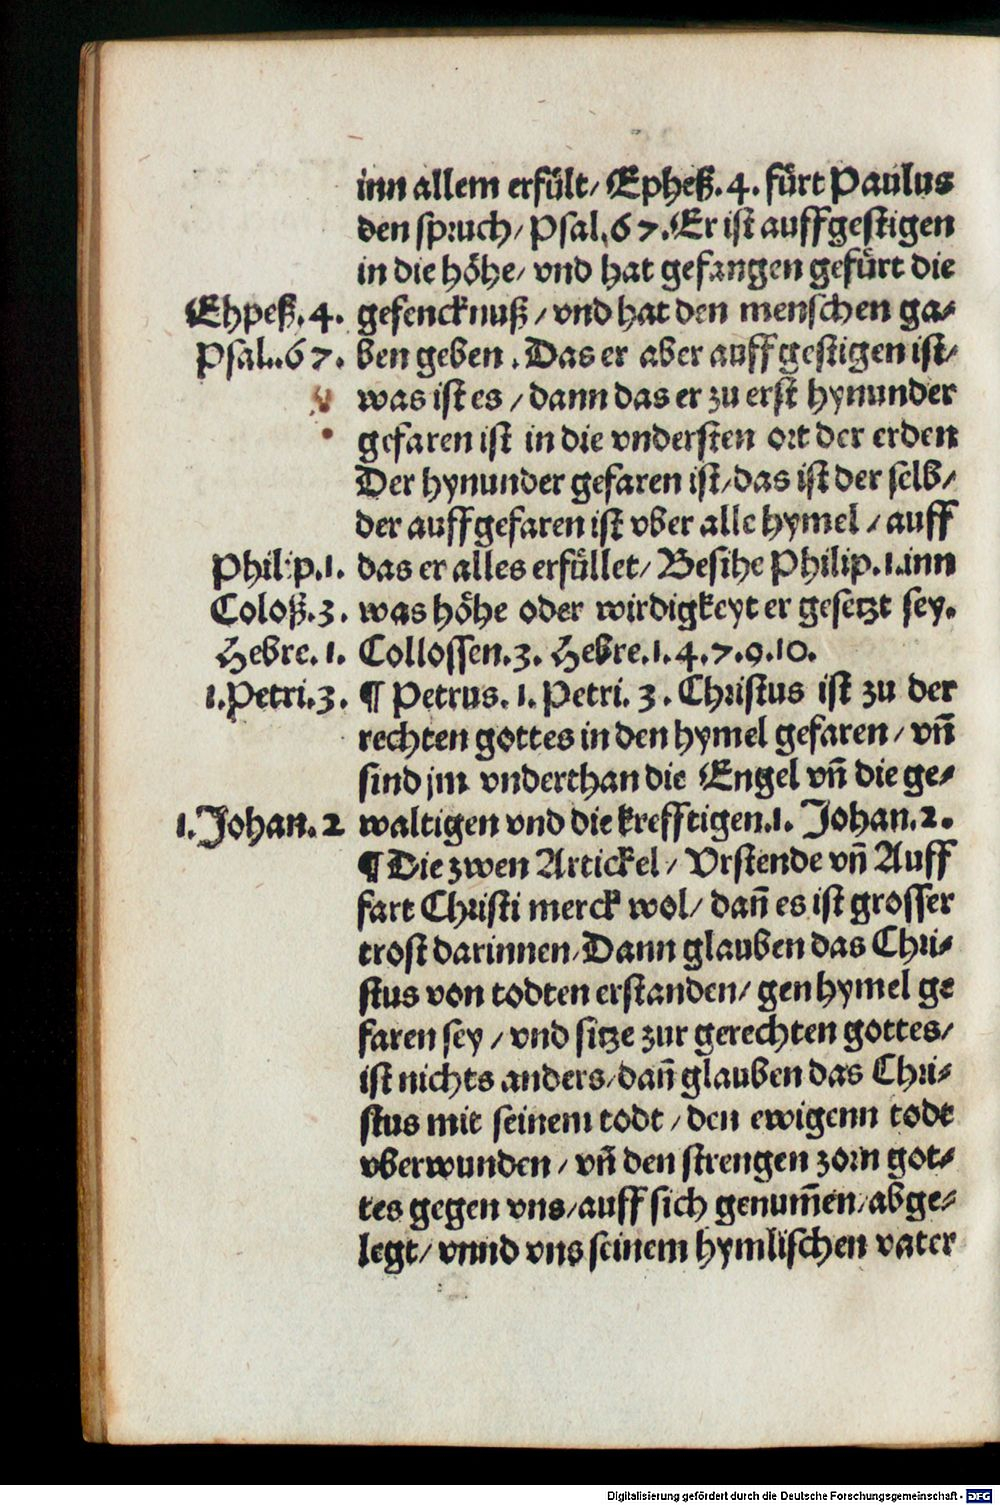 inn allem erfült/ Epheß.4. fürt Paulus
den spruch/ Psal.67. Er ist auffgestigen
in die höhe/ vnd hat gefangen gefürt die
Ehpeß.4. gefencknuß/ vnd hat den menschen ga⸗
Psal.67. ben geben. Das er aber auffgestigen ist/
was ist es/ dann das er zu erst hynunder
gefaren ist in die vndersten ort der erden
Der hynunder gefaren ist/ das ist der selb/
der auffgefaren ist vber alle hymel/ auff
Philip.1. das er alles erfüllet/ Besihe Philip.1. inn
Coloß.3. was höhe oder wirdigkeyt er gesetzt sey.
Hebre.1. Collossen.3. Hebre.1.4.7.9.10.
1.Petri.3. ¶ Petrus. 1. Petri. 3. Christus ist zu der
rechten gottes in den hymel gefaren/ vñ
sind jm vnderthan die Engel vñ die ge⸗
1.Johan.2 waltigen vnd die krefftigen.1. Johan.2.
¶ Die zwen Artickel/ Vrstende vñ Auff
fart Christi merck wol/ dañ es ist grosser
trost darinnen/ Dann glauben das Chri⸗
stus von todten erstanden/ gen hymel ge
faren sey/ vnd sitze zur gerechten gottes/
ist nichts anders/ dañ glauben das Chri⸗
stus mit seinem todt/ den ewigenn todt
vberwunden/ vñ den strengen zorn got⸗
tes gegen vns/ auff sich genum̃en/ abge⸗
legt/ vnnd vns seinem hymlischen vater
Digitalisierung gefördert durch die Deutsche Forschungsgemeinschaft - DFG